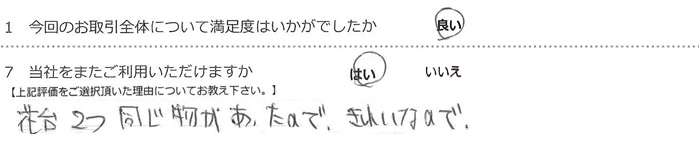 1 今回のお取引全体について満足度はいかがでしたか 良い
7 当社をまたご利用いただけますか はい いいえ
【上記評価をご選択頂いた理由についてお教え下さい。】
花台 2つ 同じ物があったので、きれいなので、